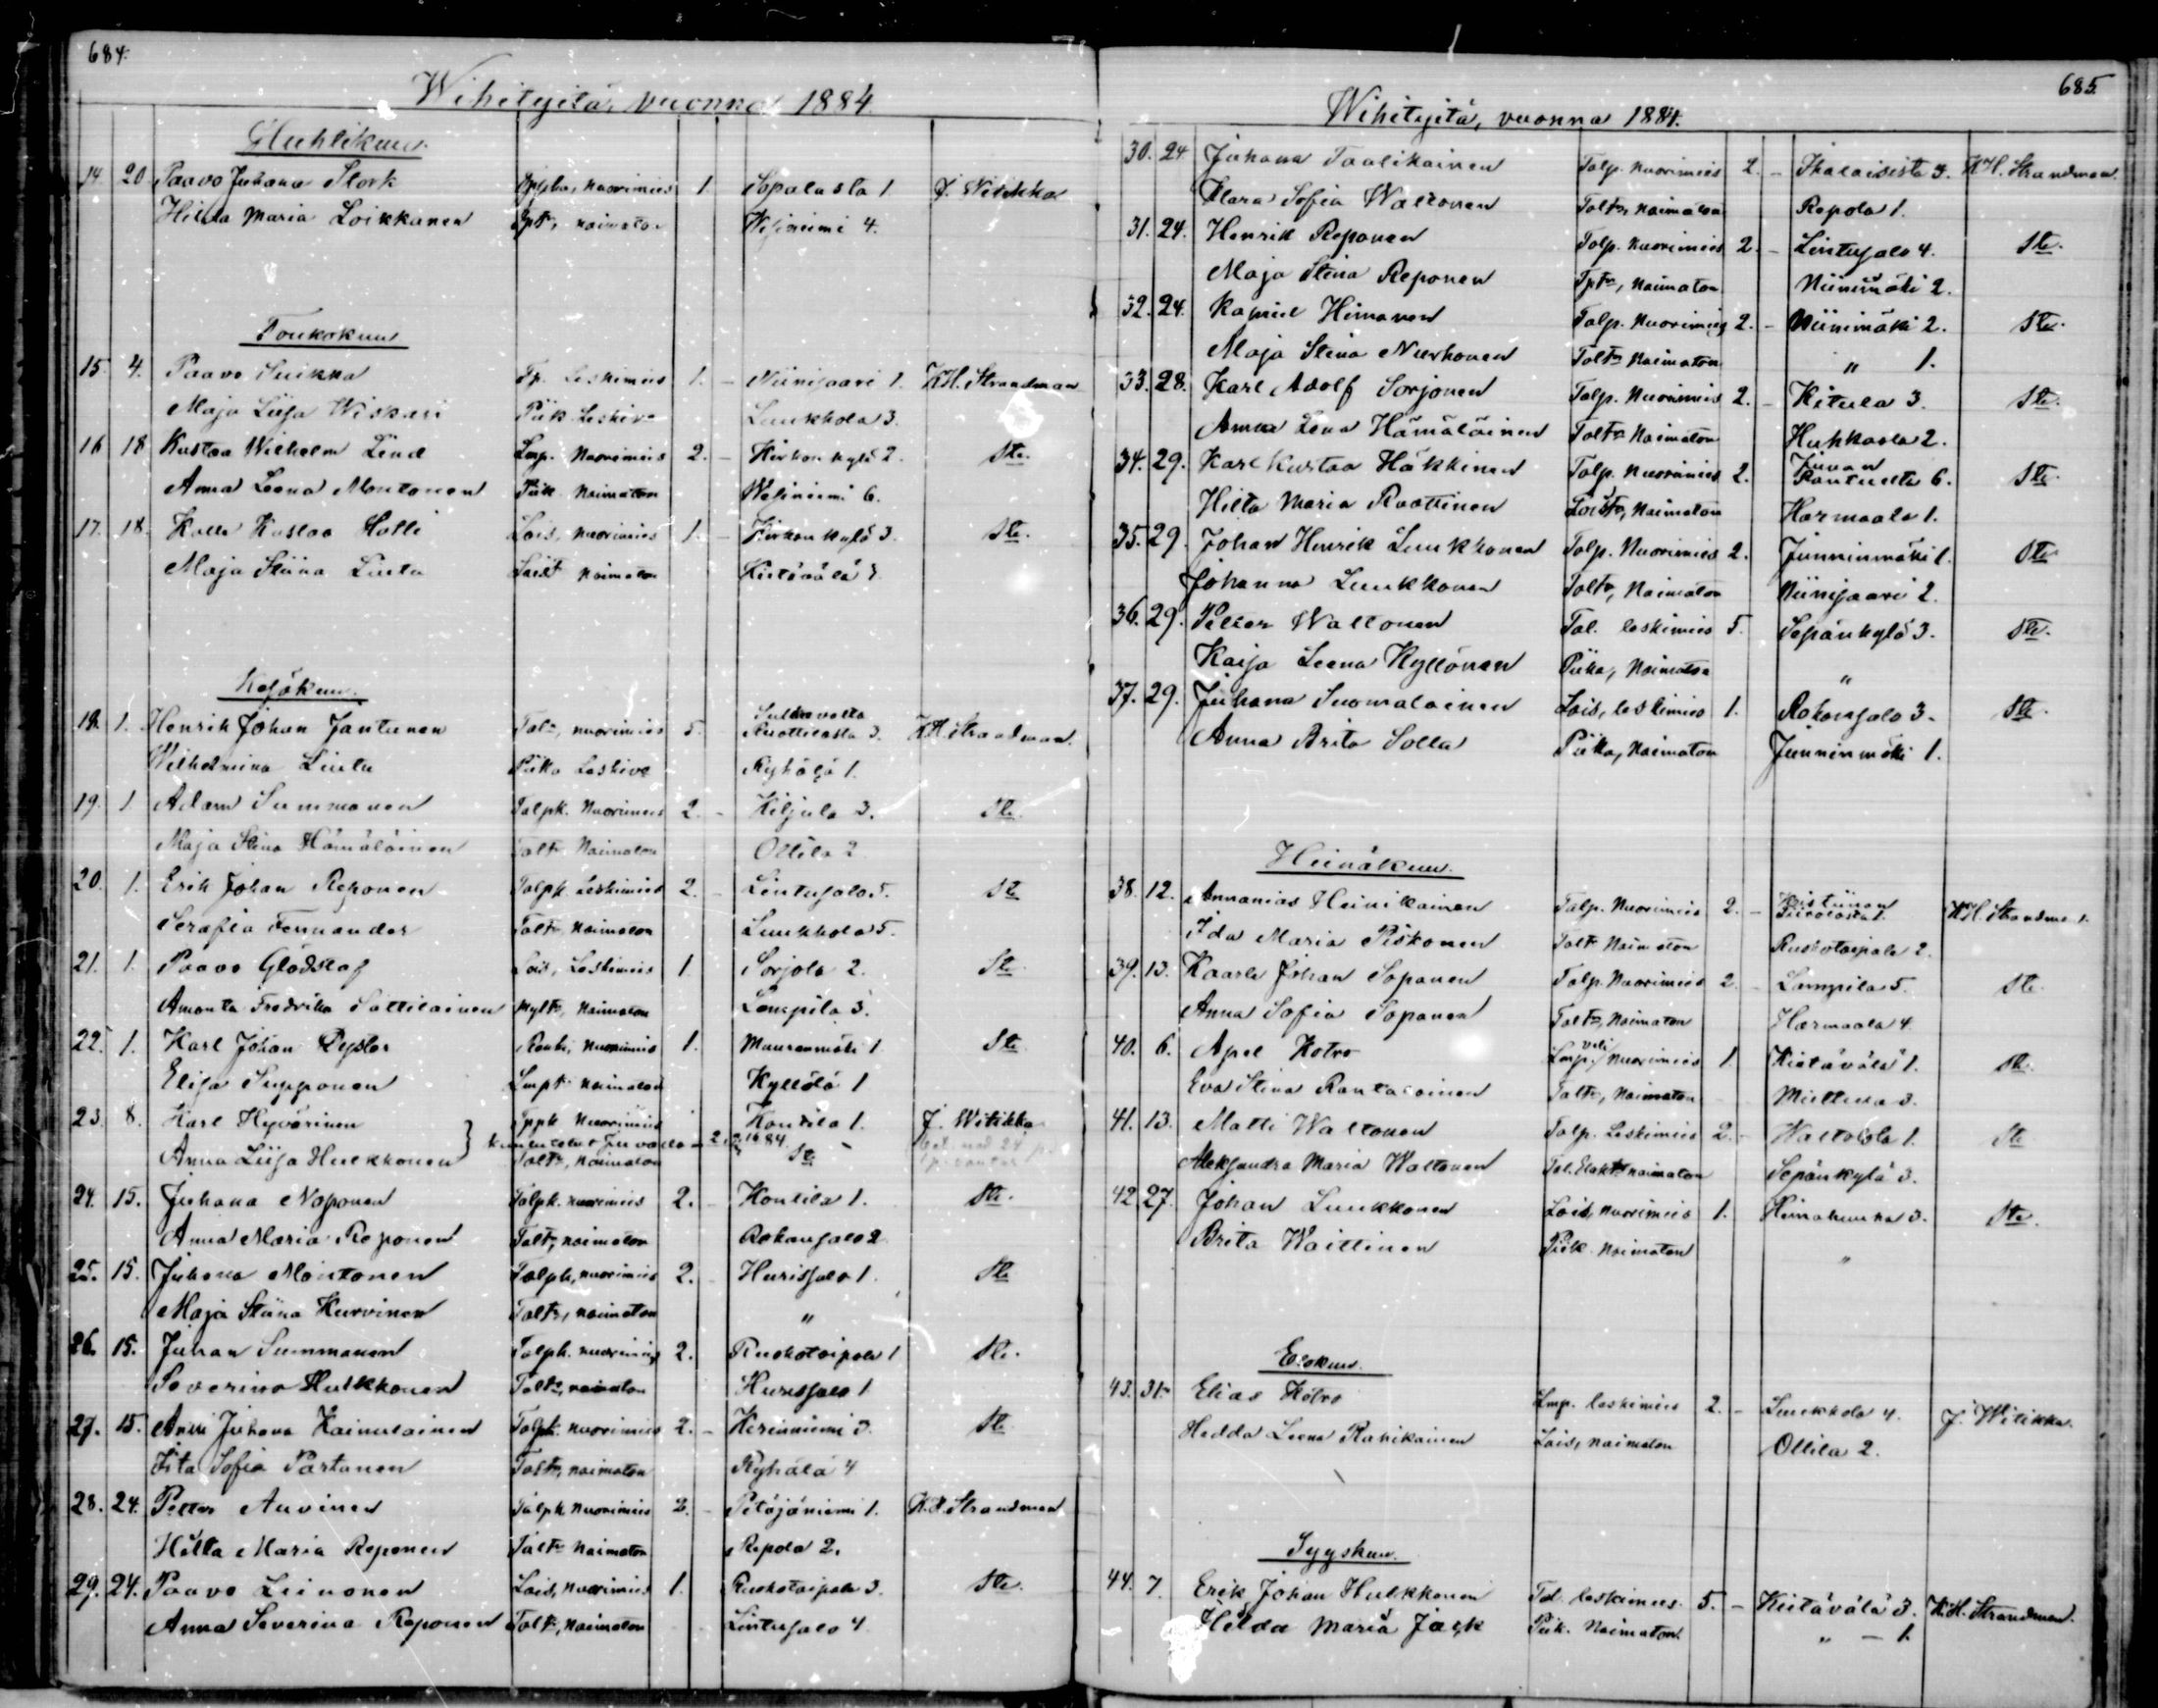 684.
Wihityitä, vuonna 1884
Huhtikuu.
14. 20 Paavo Juhana Stork nuorimies 1 Sopalasta 1 J. Witikka
Hilda Maria Loikkanen naimaton 4.
Toukokuu
15. 4. Paavo Suikka Tp. Leskimies 1. – Niinisaari 1. K.H. Strandman
Maja Liisa Wiskari Piik. Leski Luukkola 3.
16 18 Kustaa Wilhelm Lind Lmp. Nuorimies 2. – Kirkonkylä 2. Ste.
Anna Leena Montonen Piik. Naimaton Wesiniemi 6.
17. 18. Kalle Kustaa Holli Lois, nuorimies 1. – Kirkonkylä 3. Ste.
Maja Stiina Liuta Loist. Naimaton Kietävälä
Kesäkuu.
18. 1. Henrik Johan Jantunen Tal. nuorimies 5. Sulkavalta 3. K.H. Strandman.
Wilhelmina Liuta Piika Leskive Ryhälä 1.
19. 1 Adam Summanen Talpk. Nuorimies 2. – Kiljula 3. Ste.
Maja Stina Hämäläinen Talt. Naimaton Ollila 2
20. 1. Erik Johan Reponen Talpk. Leskimies 2. – Lintusalo 5. Ste
Serafia Fennander Talt. Naimaton Luukkola 5.
21. 1. Paavo Lois, Leskimies 1. Sorjola 2. Ste.
Amanta Fredrika Sattilainen Naimaton Lempilä 3.
22. 1. Karl Johan Nuorimies 1. 1 Ste
Elisa Supponen Lmpt. naimaton Kyllölä 1
23. 8. Karl Hyvärinen Nuorimies Kontila 1. J. Witikka
Anna Liisa Hulkkonen } Talt., naimaton Ste
24. 15. Juhana Noponen Talpk. nuorimies 2. – Kontila 1. Ste.
Anna Maria Reponen Talt., naimaton Rokansalo 2
25. 15. Juhana Montonen Talpk., nuorimies 2. Hurissalo 1. Ste
Maja Stiina Kurvinen Talt., naimaton "
26. 15. Juhan Summanen Talpk. nuorimies 2. Ruokotaipale 1 Ste.
Severina Hulkkonen Talt., naimaton Hurissalo 1
27. 15. Antti Juhana Kainulainen Talpk. nuorimies 2. – Kerinniemi 3. Ste
Iita Sofia Partanen Talt., naimaton Ryhälä 4
28. 24. Petter Auvinen Talpk. Nuorimies 2. – Petäjäniemi 1. K.H. Strandman
Hilta Maria Reponen Talt. Naimaton Repola 2.
29. 24. Paavo Liinanen Lois, nuorimies 1. Ruokotaipale 3. Ste.
Anna Severina Reponen Talt., Naimaton Lintusalo 4
685.
Wihityitä, vuonna 1884.
30. 24 Juhana Taalikainen Talp. Nuorimies 2. – 3. K.H. Strandman
Klara Sofia Waltonen Talt., Naimaton Repola 1.
31. 24. Henrik Reponen Talp. Nuorimies 2. – Lintusalo 4. Ste.
Maja Stina Reponen Tpt., Naimaton Niinimäki 2.
32. 24. Kapriel Himanen Talp. Nuorimies 2. – Niinimäki 2. Ste.
Maja Stina Nurhonen Talt. Naimaton " 1.
33. 28. Karl Adolf Sorjonen Talp. Nuorimies 2. – Kitula 3. Ste.
Anna Lena Hämäläinen Talt. Naimaton Huhkaala 2.
34. 29. Karl Kustaa Häkkinen Talp. Nuorimies 2. Juvan 6. Ste.
Hilta Maria Raattinen Loist., Naimaton Harmaala 1.
35. 29. Johan Henrik Luukkonen Talp. Nuorimies 2. Junninmäki 1. Ste
Johanna Luukkonen Talt., Naimaton Niinisaari 2.
36. 29. Petter Waltonen Tal. leskimies 5. Sepänkylä 3. Ste.
Kaija Leena Kyllönen Piika, Naimaton "
37. 29. Juhana Suomalainen Lois, leskimies 1. Rokansalo 3. Ste.
Anna Brita Solla Piika, Naimaton Junninmäki 1.
Heinäkuu.
38. 12. Annanias Heinikainen Talp. Nuorimies 2. – Kristiinan K.H. Strandman
Ida Maria Piskonen Talt. Naimaton Ruokotaipale 2.
39. 13. Kaarle Johan Sopanen Talp. Nuorimies 2. – Lempilä 5. Ste.
Anna Sofia Sopanen Talt., Naimaton Harmaala 4.
40. 6. Apel Kotro Lmp. veli, Nuorimies 1. Kietävälä 1. Ste.
Eva Stina Rantalainen Talt., Naimaton Miettula 3.
41. 13. Matti Waltonen Talp. Leskimies 2. – Waltola 1. Ste
Aleksandra Maria Waltonen Tal. Elakt. naimaton Sepänkylä 3.
42 27. Johan Luukkonen Lois, nuorimies 1. 3. Ste.
Brita Waittinen Piik. Naimaton "
Elokuu.
43. 31. Elias Kotro Lmp. leskimies 2. – Luukkola 4. J. Witikka.
Hedda Leena Rahikainen Lois, naimaton Ollila 2.
Syyskuu.
44. 7. Erik Johan Hulkkonen Tal. leskimies. 5. – Kietävälä 3. K.H. Strandman.
Hilda Maria Jack Piik. Naimaton " – 1.